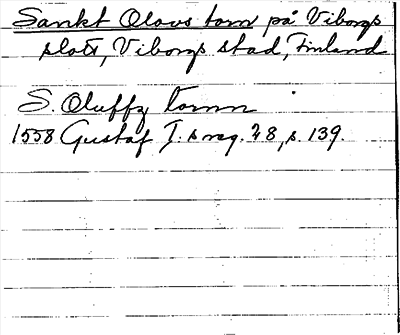 Sankt Olovs torn på Viborgs
slott, Viborgs stad, Finland
S. Oluffz tornn
1558 Gustaf I:s reg. 28, s. 139.